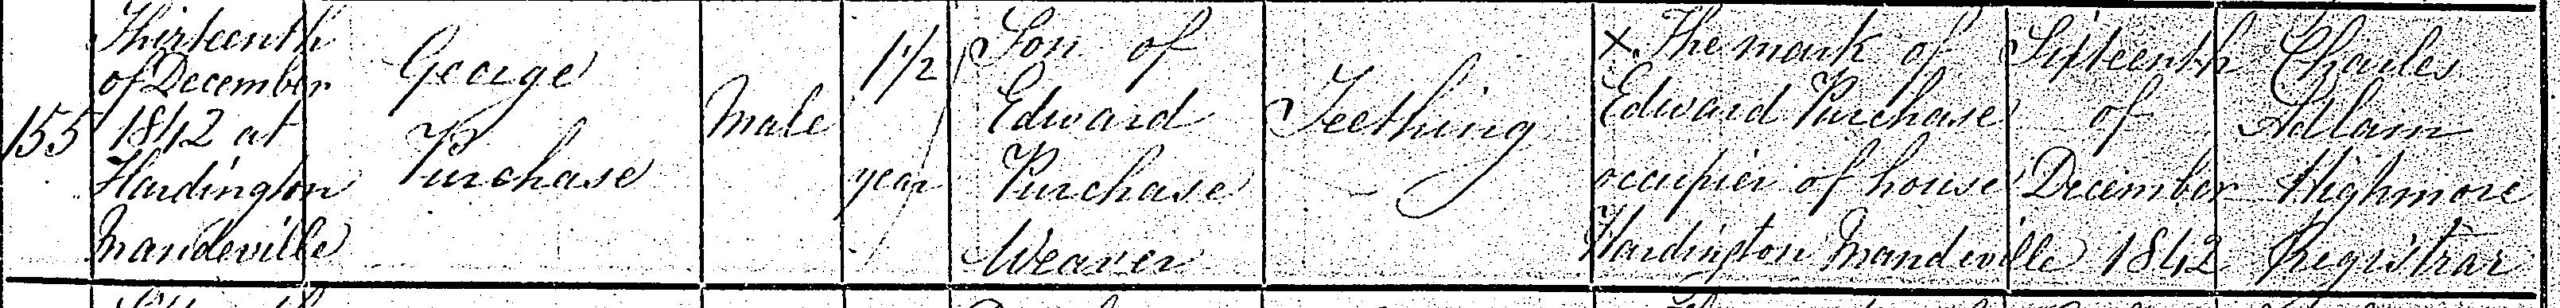 155
Thirteenth
of December
1842 at
Hardington
Mandeville
George
Purchase
Male
1 1/2
year
Son of
Edward
Purchase
Weaver
Teething
X The mark of
Edward Purchase
occupier of house
Hardington Mandeville
Sixteenth
of
December
1842
Charles
Adlam
Highmore
Registrar